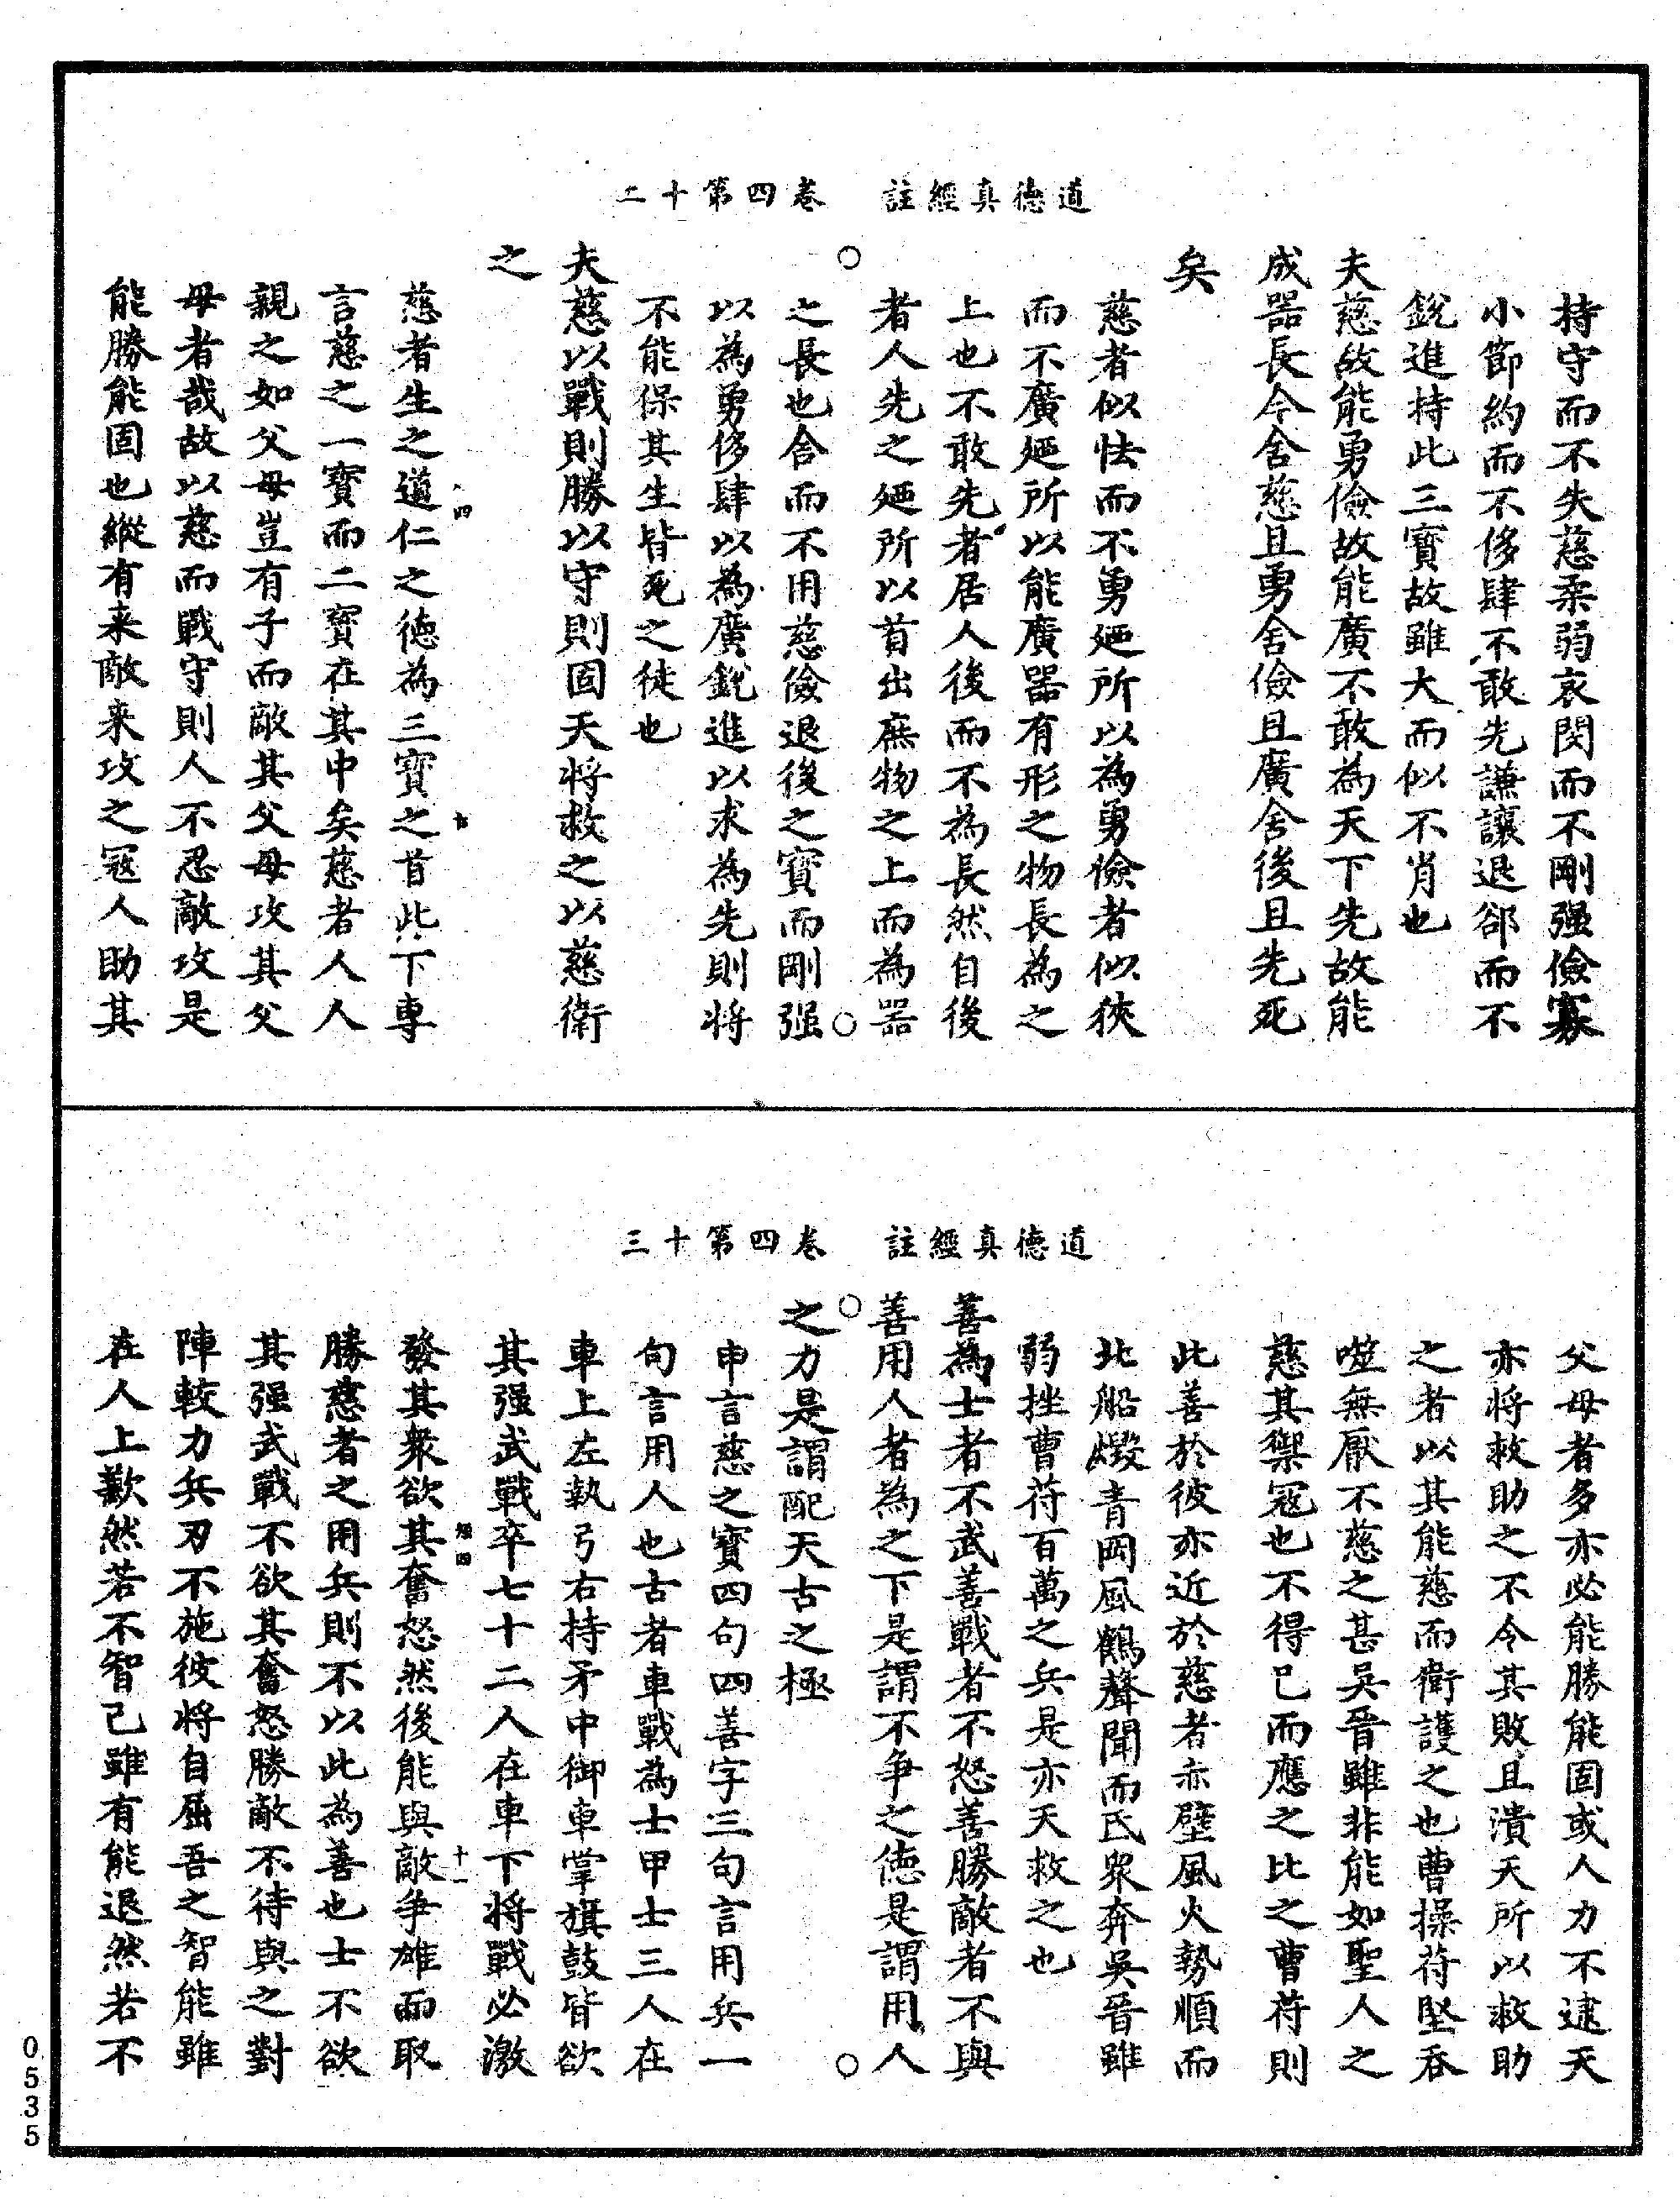 道德真經註　卷四第十二
持守而不失慈柔弱哀閔而不剛强儉寡
小節約而不侈肆不敢先謙讓退郤而不
銳進持此三寶故雖大而似不肖也
夫慈故能勇儉故能廣不敢為天下先故能
成器長今舍慈且勇舍儉且廣舍後且先死
矣
慈者似怯而不勇廼所以為勇儉者似狹
而不廣廼所以能廣器有形之物長為之
上也不敢先者居人後而不為長然自後
者人先之廼所以首出庶物之上而為器
之長也舍而不用慈儉退後之寶而剛强
以為勇侈肆以為廣銳進以求為先則将
不能保其生皆死之徒也
夫慈以戰則勝以守則固天将救之以慈衛
之
慈者生之道仁之德為三寶之首此下專
言慈之一寶而二寶在其中矣慈者人人
親之如父母豈有子而敵其父母攻其父
母者哉故以慈而戰守則人不忍敵攻是
能勝能固也縱有来敵来攻之冦人助其
道德真經註　卷四第十三
父母者多亦必能勝能固或人力不逮天
亦将救助之不令其敗且潰天所以救助
之者以其能慈而衛護之也曹操苻堅吞
噬無厭不慈之甚吳晉雖非能如聖人之
慈其禦冦也不得已而應之比之曹苻則
此善於彼亦近於慈者赤壁風火勢順而
北船燬青岡風鶴聲聞而氐衆奔吳晉雖
弱挫曹苻百萬之兵是亦天救之也
善為士者不武善戰者不怒善勝敵者不與
善用人者為之下是謂不争之德是謂用人
之力是謂配天古之極
申言慈之寶四句四善字三句言用兵一
句言用人也古者車戰為士甲士三人在
車上左執弓右持矛中御車掌旗鼓皆欲
其强武戰卒七十二人在車下将戰必激
發其衆欲其奮怒然後能與敵争雄而取
勝慈者之用兵則不以此為善也士不欲
其强武戰不欲其奮怒勝敵不待與之對
陣較力兵刃不施彼将自屈吾之智能雖
在人上歉然若不智己雖有能退然若不
0535